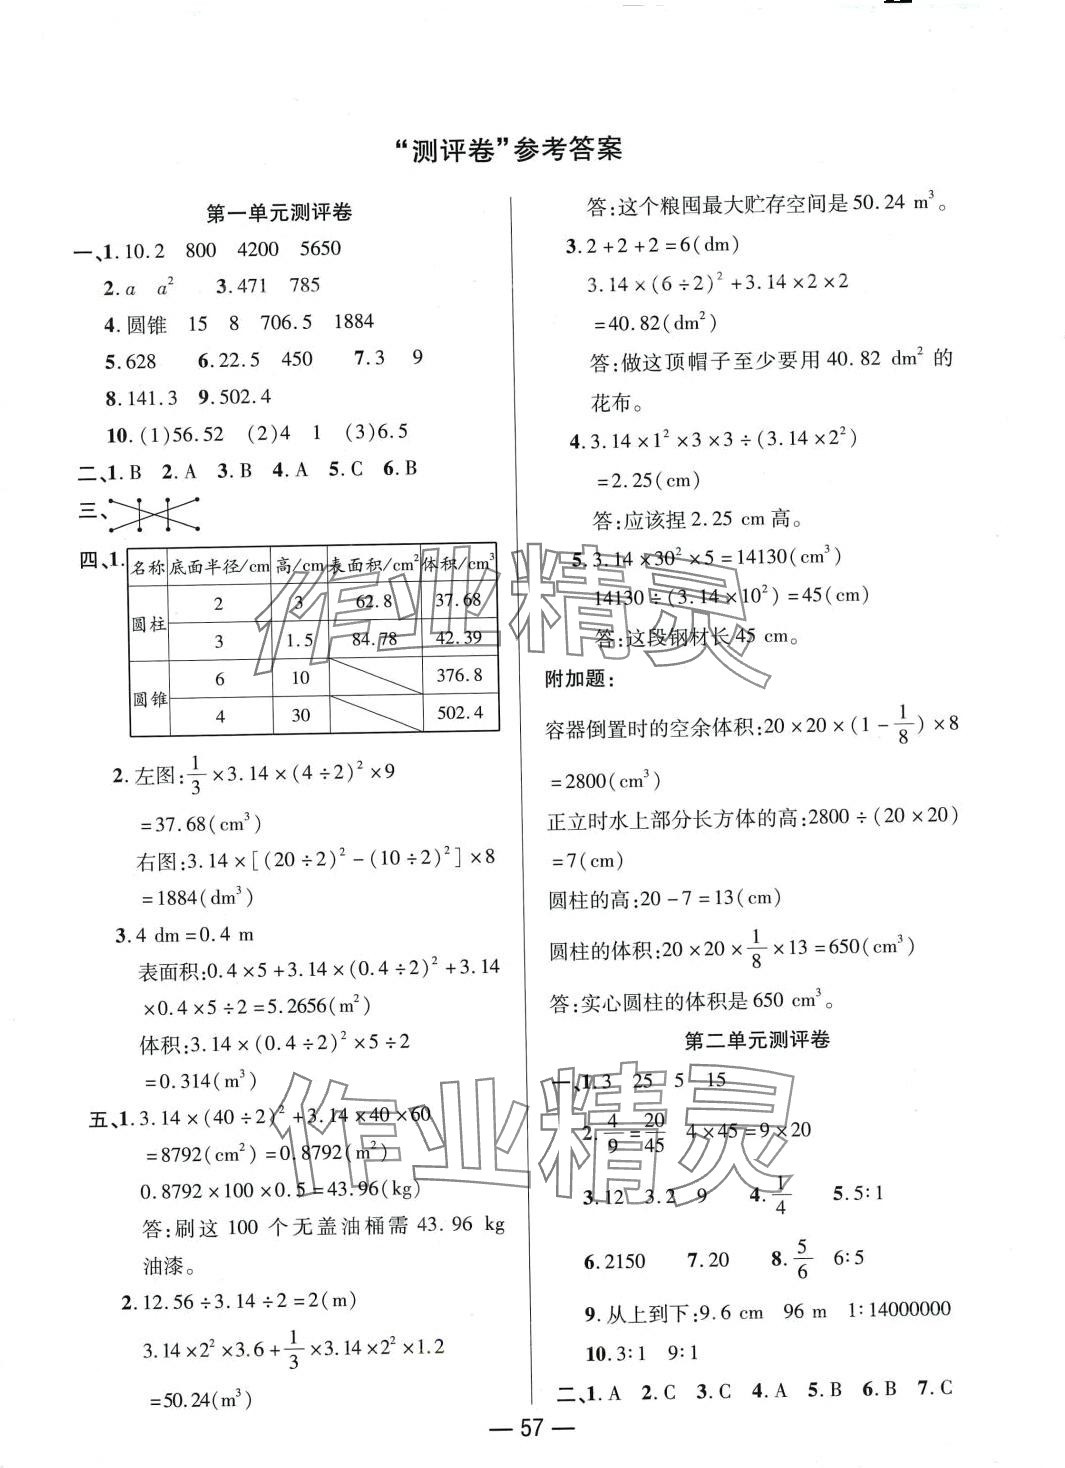 “测评卷”参考答案
第一单元测评卷
一、1.10.2 800 4200 5650
2.a a² 3.471 785
4.圆锥 15 8 706.5 1884
5.628 6.22.5 450 7.3 9
8.141.3 9.502.4
10.(1)56.52 (2)4 1 (3)6.5
二、1.B 2.A 3.B 4.A 5.C 6.B
三、
四、1.
名称 底面半径/cm 高/cm 表面积/cm² 体积/cm³
圆柱 2 3 62.8 37.68
3 1.5 84.78 42.39
圆锥 6 10 376.8
4 30 502.4
2.左图:1/3×3.14×(4÷2)²×9
=37.68(cm³)
右图:3.14×[(20÷2)²-(10÷2)²]×8
=1884(dm³)
3.4 dm=0.4 m
表面积:0.4×5+3.14×(0.4÷2)²+3.14
×0.4×5÷2=5.2656(m²)
体积:3.14×(0.4÷2)²×5÷2
=0.314(m³)
五、1.3.14×(40÷2)²+3.14×40×60
=8792(cm²)=0.8792(m²)
0.8792×100×0.5=43.96(kg)
答:刷这 100 个无盖油桶需 43.96 kg
油漆。
2.12.56÷3.14÷2=2(m)
3.14×2²×3.6+1/3×3.14×2²×1.2
=50.24(m³)
答:这个粮囤最大贮存空间是50.24 m³。
3.2+2+2=6(dm)
3.14×(6÷2)²+3.14×2×2
=40.82(dm²)
答:做这顶帽子至少要用 40.82 dm² 的
花布。
4.3.14×1²×3×3÷(3.14×2²)
=2.25(cm)
答:应该捏 2.25 cm 高。
5.3.14×30²×5=14130(cm³)
14130÷(3.14×10²)=45(cm)
答:这段钢材长 45 cm。
附加题:
容器倒置时的空余体积:20×20×(1-1/8)×8
=2800(cm³)
正立时水上部分长方体的高:2800÷(20×20)
=7(cm)
圆柱的高:20-7=13(cm)
圆柱的体积:20×20×1/8×13=650(cm³)
答:实心圆柱的体积是 650 cm³。
第二单元测评卷
一、1.3 25 5 15
2.4/9=20/45 4×45=9×20
3.12 3.2 9 4.1/4 5.5∶1
6.2150 7.20 8.5/6 6∶5
9.从上到下:9.6 cm 96 m 1∶14000000
10.3∶1 9∶1
二、1.A 2.C 3.C 4.A 5.B 6.B 7.C
— 57 —
作业精灵
作业精灵